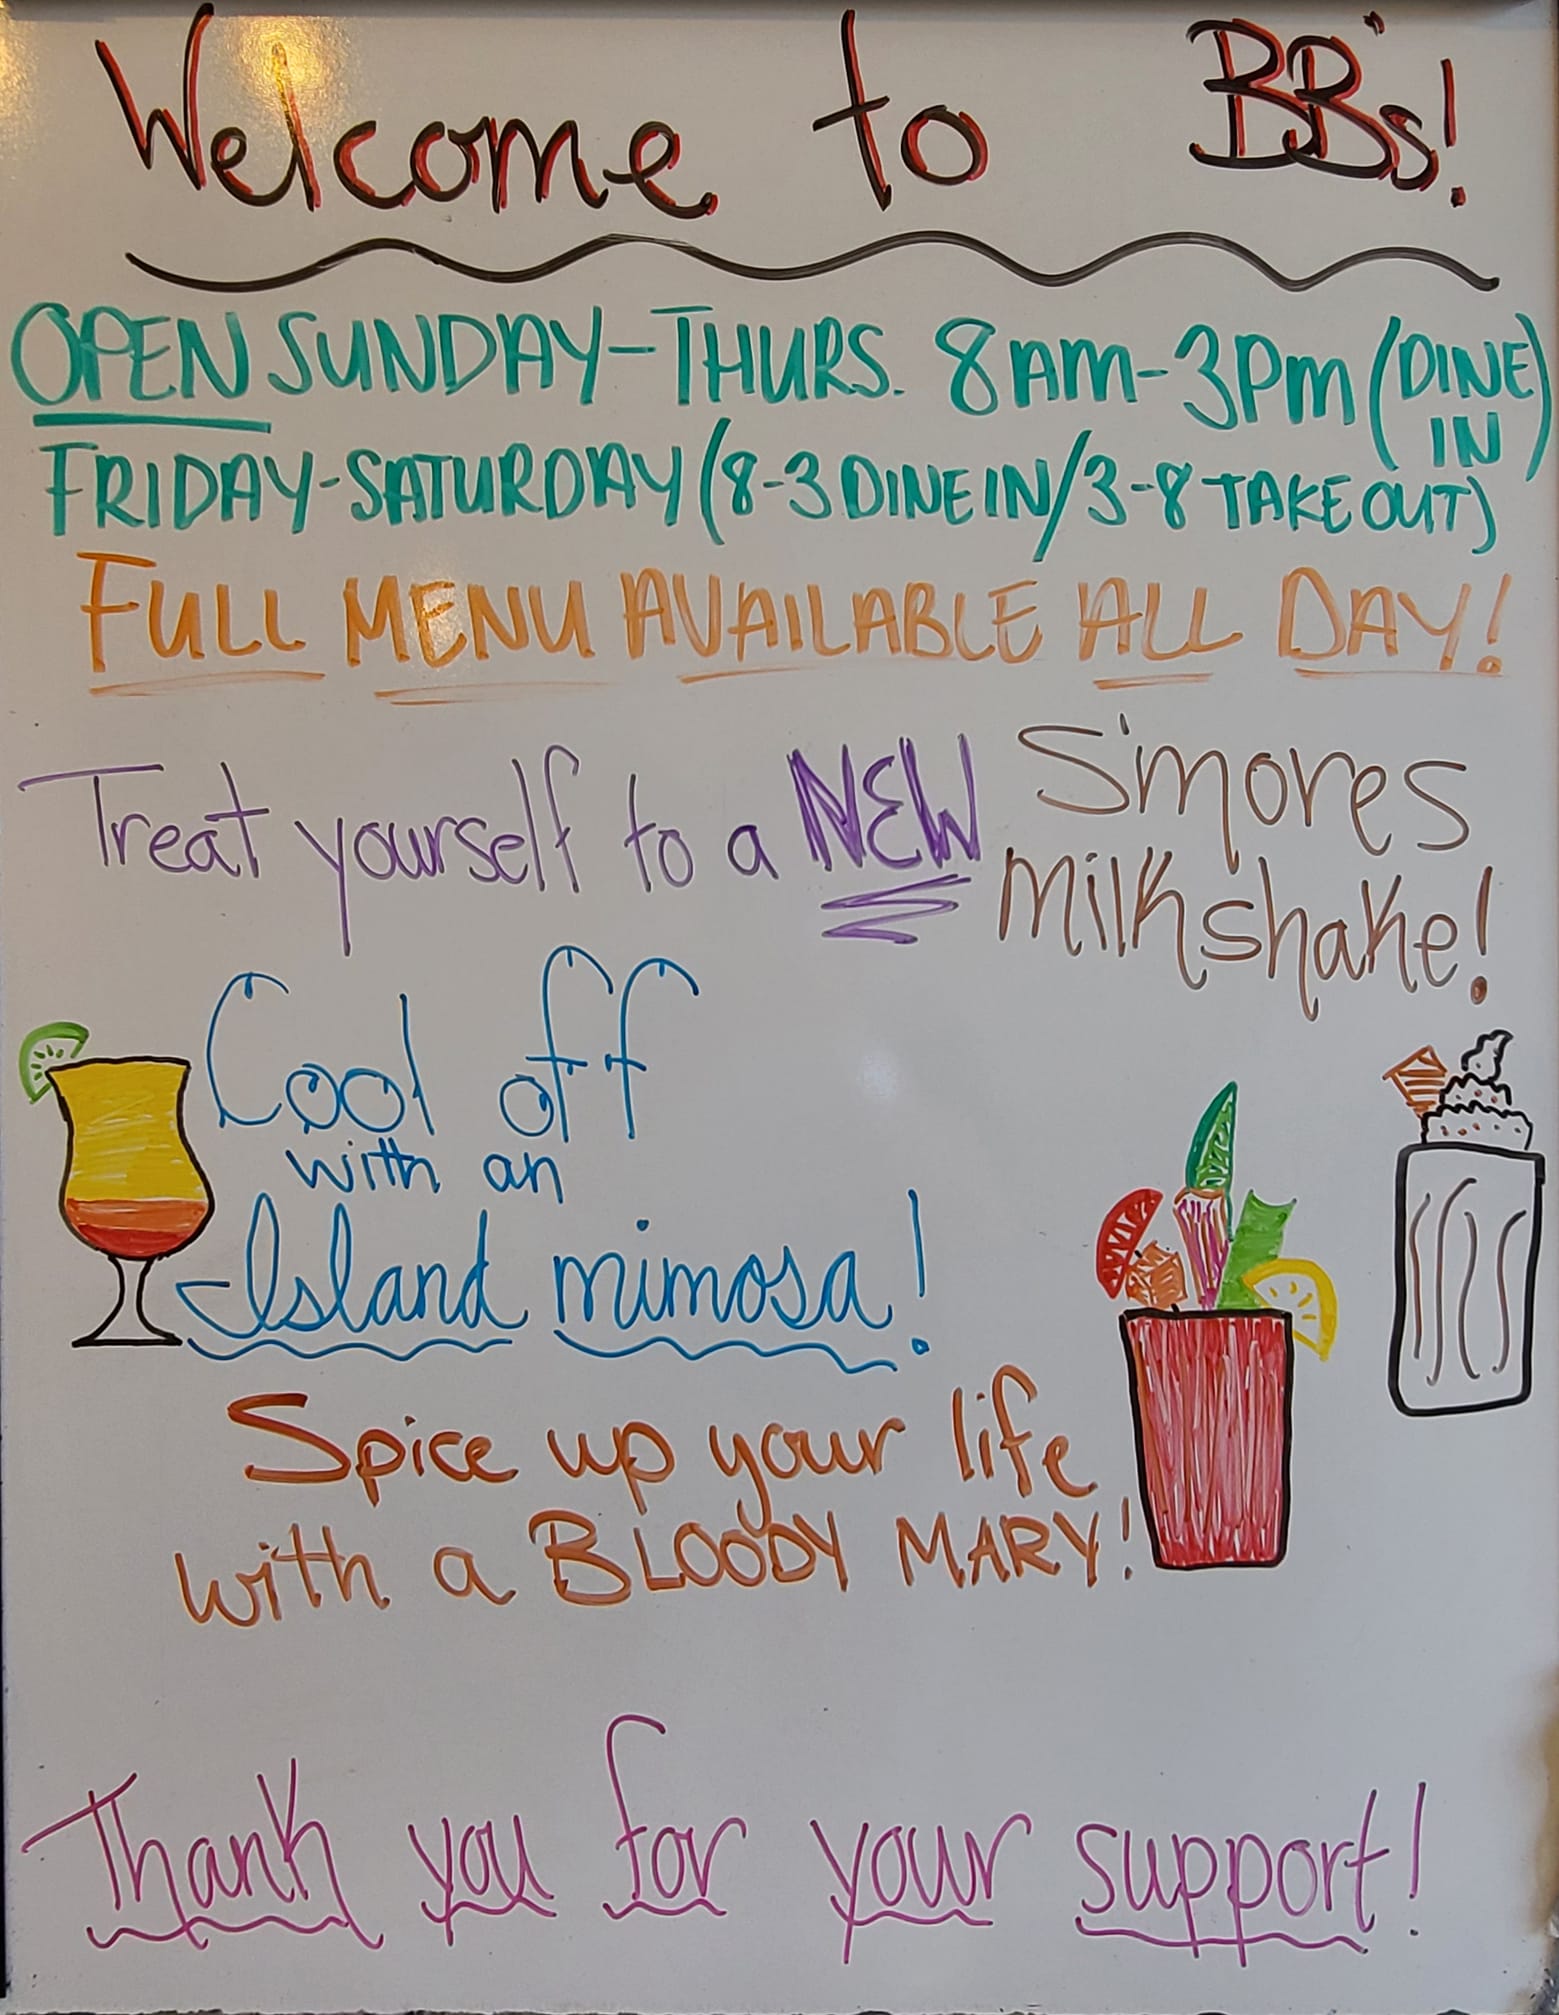 Welcome to BB's!
OPEN SUNDAY-THURS. 8AM-3PM (DINE IN)
FRIDAY-SATURDAY (8-3 DINE IN/3-8 TAKE OUT)
FULL MENU AVAILABLE ALL DAY!
Treat yourself to a NEW S'mores
milkshake!
Cool off
with an
Island mimosa!
Spice up your life
with a BLOODY MARY!
Thank you for your support!